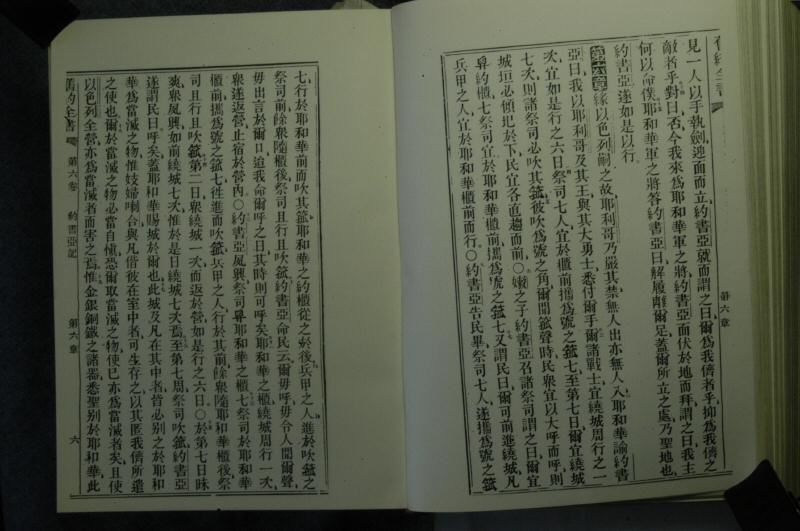 舊約全書
見一人以手執劍迎面而立約書亞就而謂之曰爾爲我儕者乎抑爲我儕之
敵者乎對曰否今我來爲耶和華軍之將約書亞面伏於地而拜謂之曰我主
何以命僕耶和華軍之將答約書亞曰解履離爾足蓋爾所立之處乃聖地也
約書亞遂如是以行
第六章緣以色列嗣之故耶利哥乃嚴其禁無人出亦無人入耶和華諭約書
亞曰我以耶利哥及其王與其大勇士悉付爾手爾諸戰士宜繞城周行之一
次宜如是行之六日祭司七人宜於櫃前攜爲號之箛七至第七日爾宜繞城
七次則諸祭司必吹其箛彼吹爲號之角爾聞箛聲時民衆宜以大呼而呼則
城垣必傾圮於下民宜各直趨而前○嫩之子約書亞召諸祭司謂之曰爾宜
舁約櫃七祭司宜於耶和華櫃前攜爲號之箛七又謂民曰爾可前進繞城凡
兵甲之人宜於耶和華櫃前而行○約書亞告民畢祭司七人遂攜爲號之箛
第六章
七行於耶和華前而吹其箛耶和華之約櫃從之於後兵甲之人進於吹箛之
祭司前餘衆隨櫃後祭司且行且吹箛約書亞命民云爾毋呼毋令人聞爾聲
毋出言於爾口迨我命爾呼之日其時則可呼矣耶和華之櫃繞城周行一次
衆遂返營止宿於營內○約書亞夙興祭司舁耶和華之櫃七祭司於耶和華
櫃前攜爲號之箛七往進而吹箛兵甲之人行於其前餘衆隨耶和華櫃後祭
司且行且吹箛第二日衆繞城一次而返於營如是行之六日○於第七日昧
爽衆夙興如前繞城七次惟於是日繞城七次焉至第七周祭司吹箛約書亞
遂謂民曰呼矣蓋耶和華賜城於爾也此城及凡在其中者皆必別之於耶和
華爲當滅之物惟妓婦喇合與凡偕彼在室中者可生存之以其匿我儕所遣
之使也爾於當滅之物必當自愼恐爾取當滅之物使已亦爲當滅者矣且使
以色列全營亦爲當滅者而害之焉惟金銀銅鐵之諸器悉聖别於耶和華此
舊約全書
第六卷
約書亞記
第六章
六